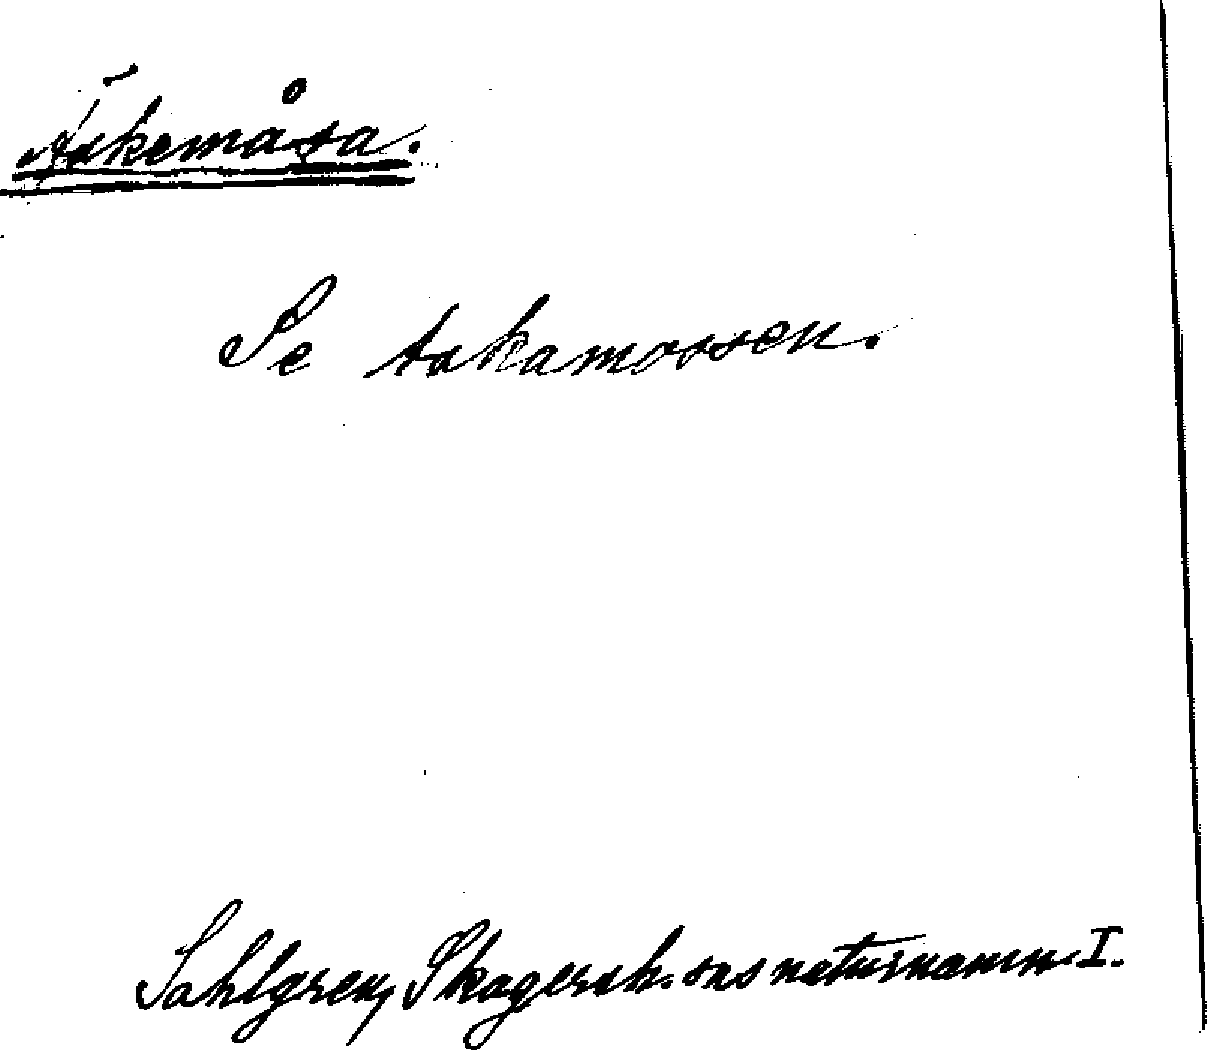 Āskemåsa.
Se Askamossen.
Sahlgren, Skagersh. sns naturnamn I.